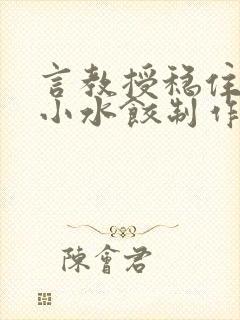 言教授稳住
小水饺制作
陳會君